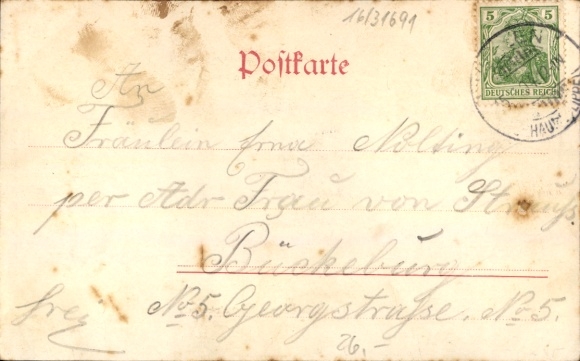 16/31691
5 5
DEUTSCHES REICH
Postkarte
An
Fräulein Erna Nolting
per Adr Frau von Strauß
Bückeburg
frei No 5. Georgstrasse. No. 5.
26.-